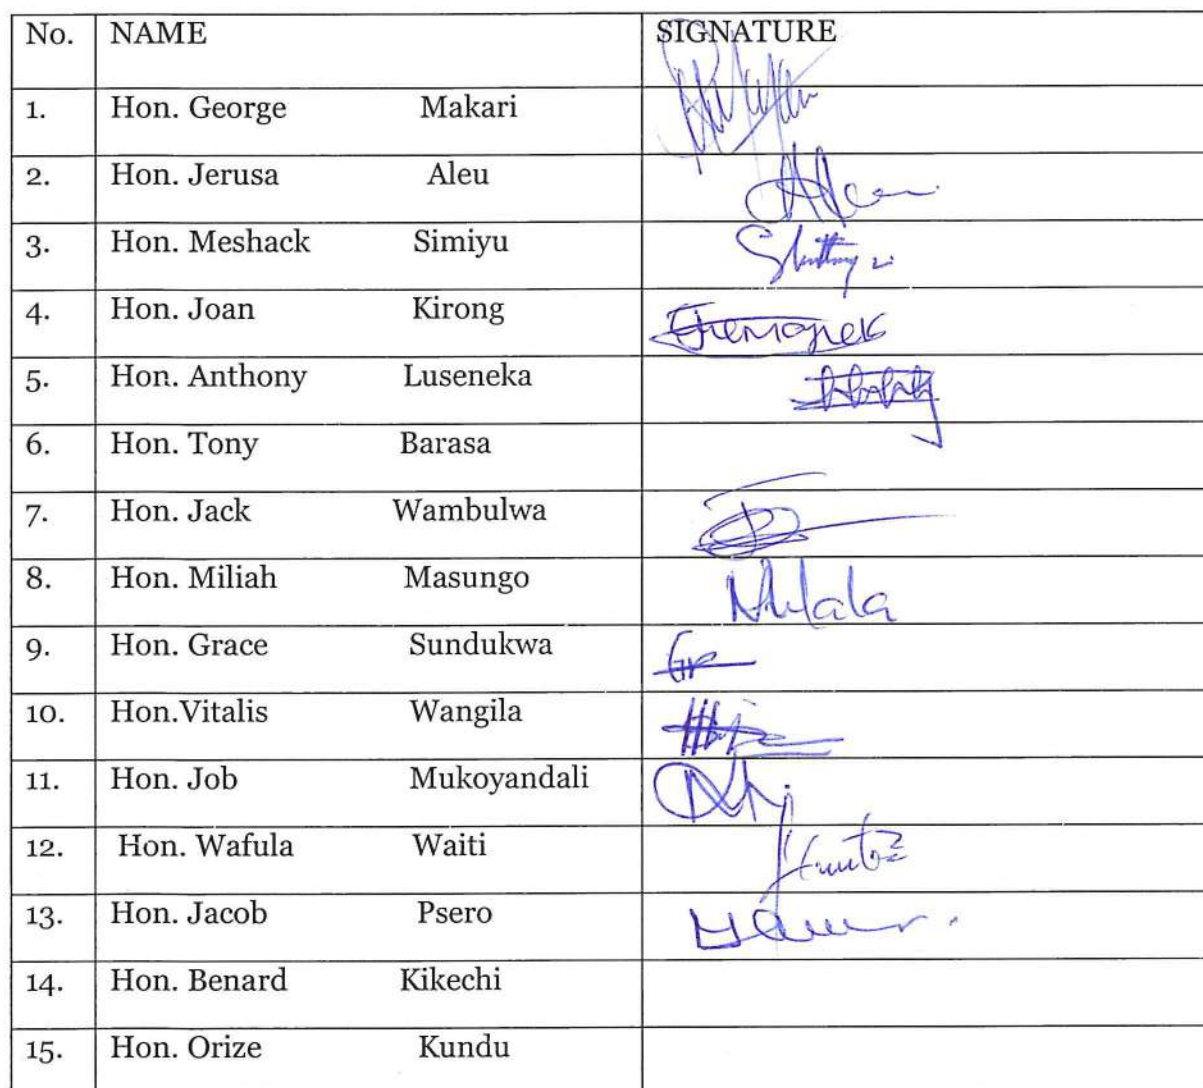 No. NAME SIGNATURE
1. Hon. George Makari
2. Hon. Jerusa Aleu
3. Hon. Meshack Simiyu
4. Hon. Joan Kirong
5. Hon. Anthony Luseneka
6. Hon. Tony Barasa
7. Hon. Jack Wambulwa
8. Hon. Miliah Masungo
9. Hon. Grace Sundukwa
10. Hon.Vitalis Wangila
11. Hon. Job Mukoyandali
12. Hon. Wafula Waiti
13. Hon. Jacob Psero
14. Hon. Benard Kikechi
15. Hon. Orize Kundu